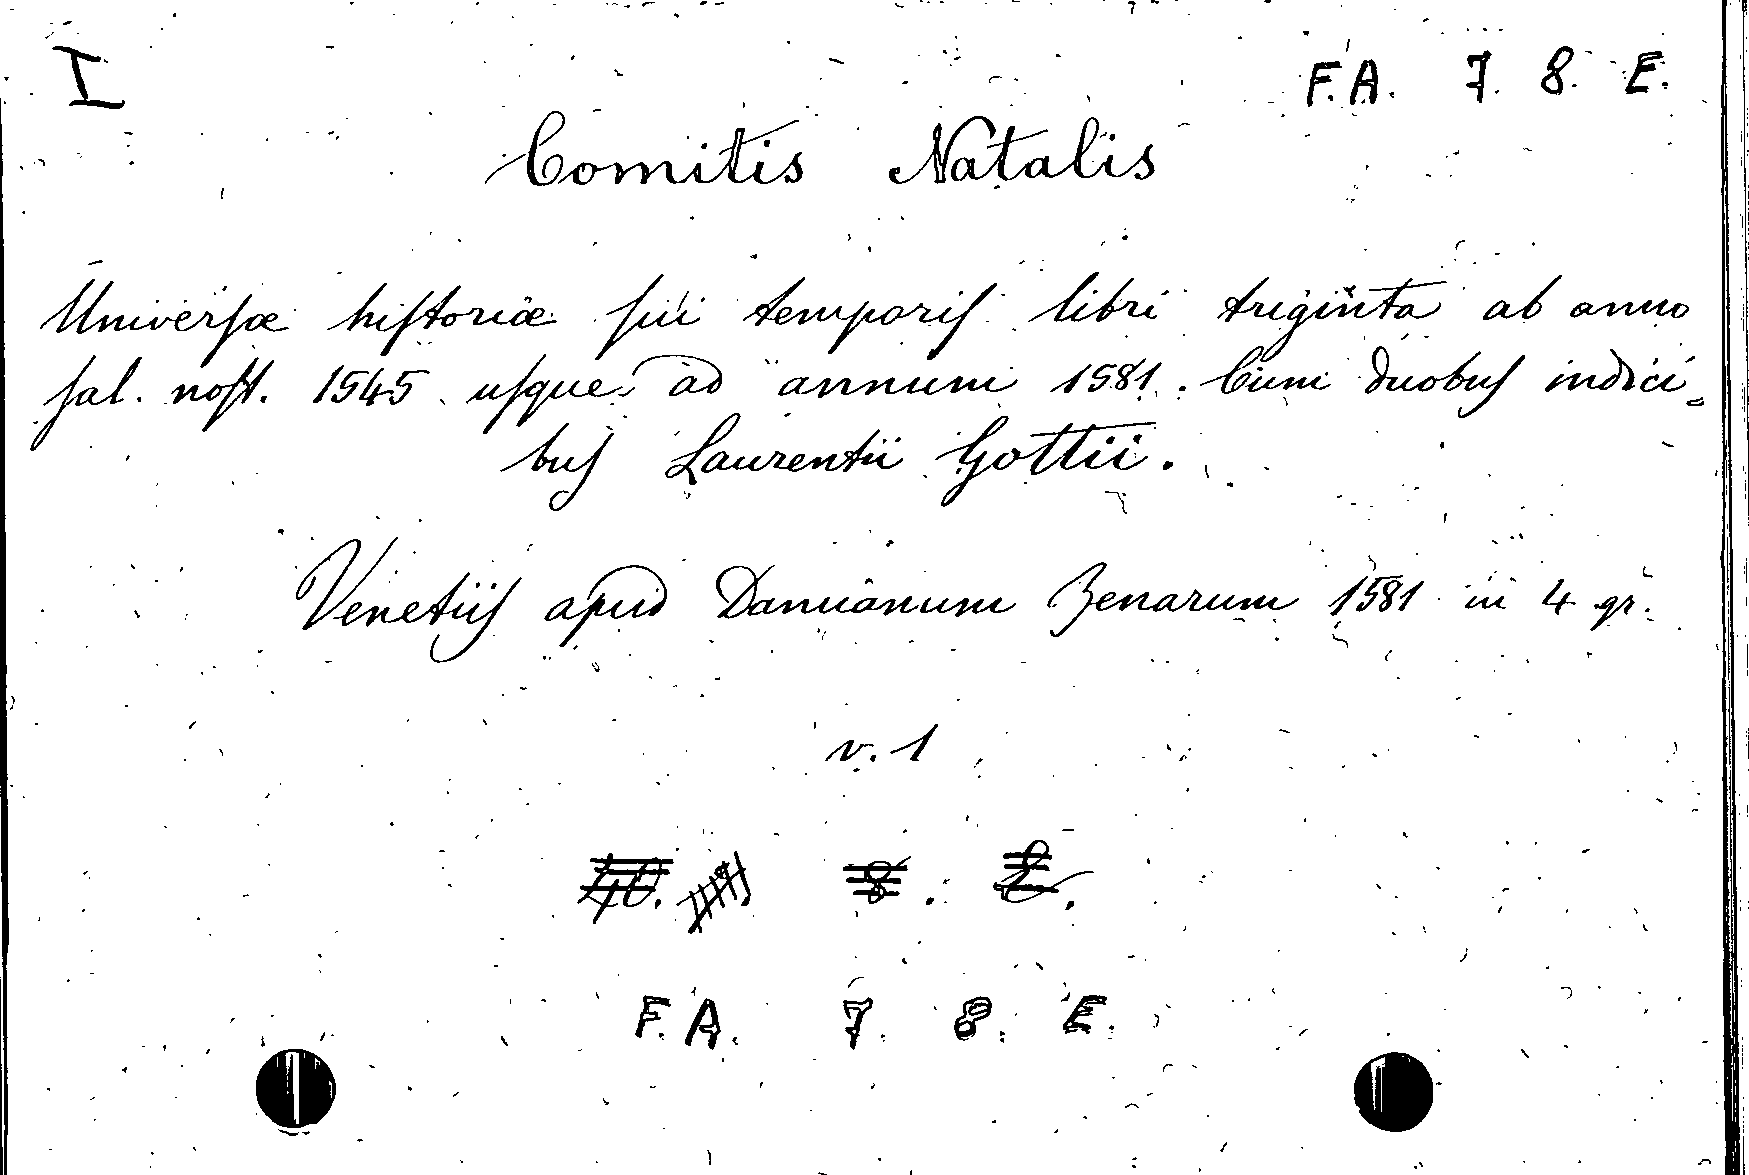 I F. A. 7. 8. E.
Comitis Natalis
Universæ historiæ sui temporis libri triginta ab anno
sal. nost. 1545 usque ad annum 1581. Cum duobus indici=
bus Laurentii Gottii.
Venetiis apud Damianum Zenarum 1581 in 4 gr.
v. 1
8. E.
F. A. 7. 8. E.